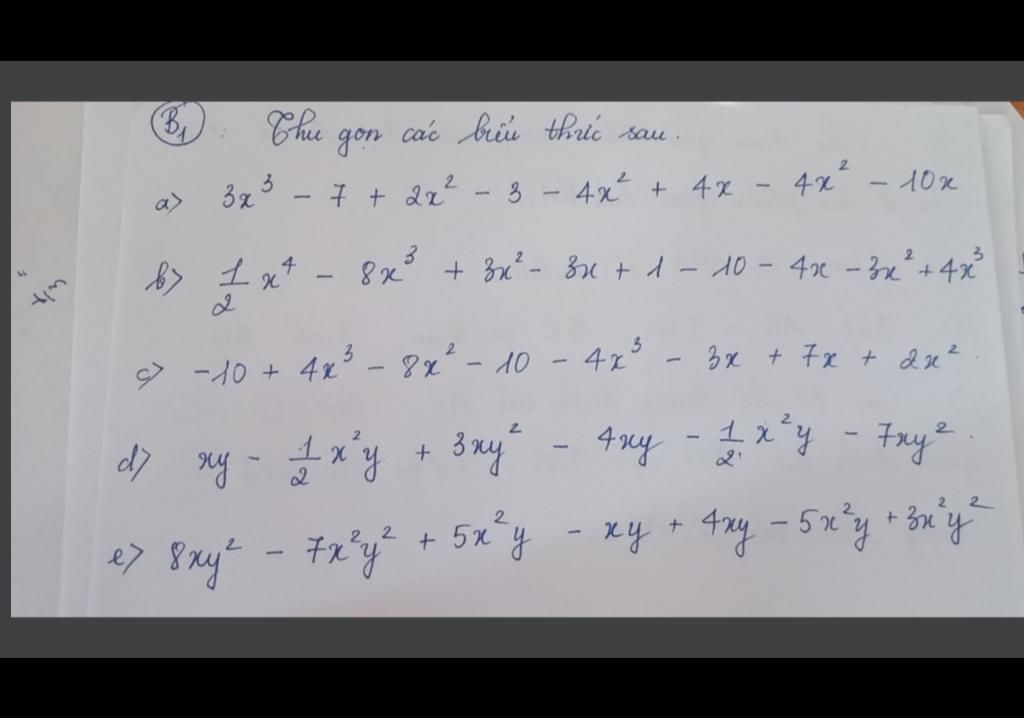 B1 : Thu gọn các biểu thức sau.
a> 3x³ - 7 + 2x² - 3 - 4x² + 4x - 4x² - 10x
b> 1/2 x⁴ - 8x³ + 3x² - 3x + 1 - 10 - 4x - 3x² + 4x³
c> -10 + 4x³ - 8x² - 10 - 4x³ - 3x + 7x + 2x².
d> xy - 1/2 x²y + 3xy² - 4xy - 1/2 x²y - 7xy².
e> 8xy² - 7x²y² + 5x²y - xy + 4xy - 5x²y + 3x²y²